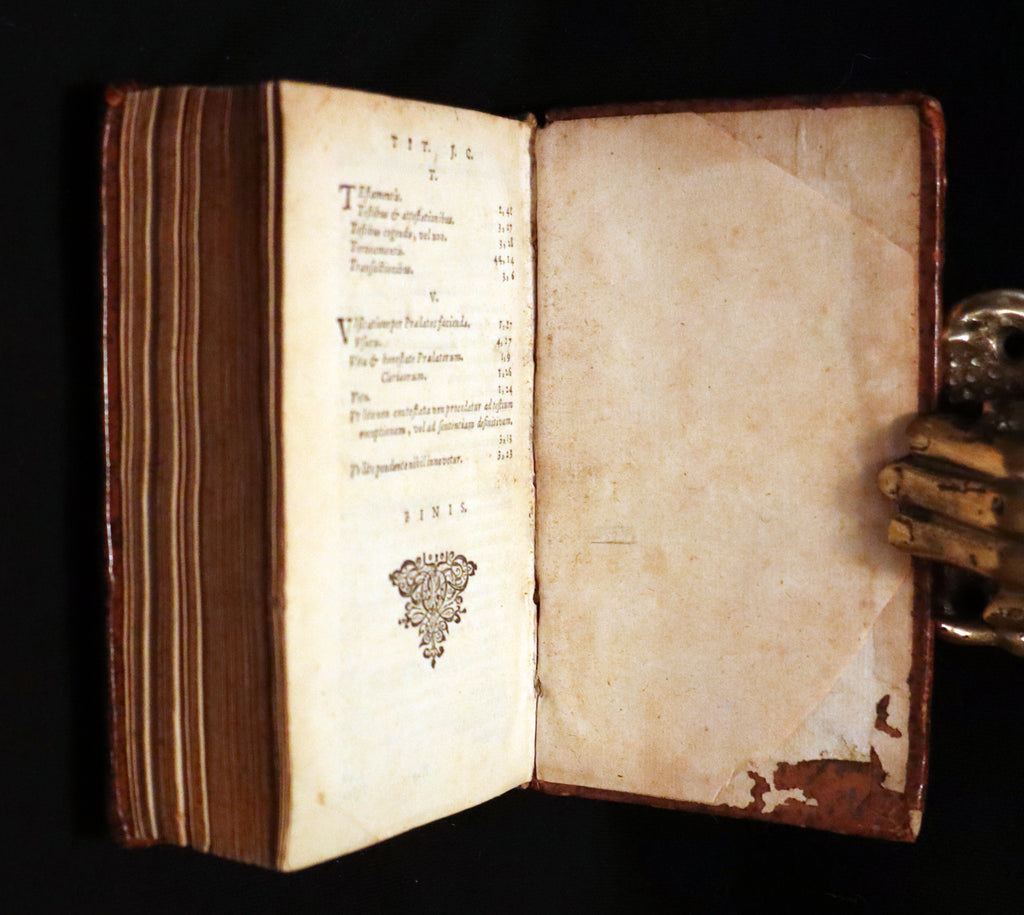 TIT. J. C.
T.
TEstamentis. 1, 41
Testibus & attestationibus. 3, 27
Testibus cogendis, vel non. 3, 28
Torneamentis. 44, 14
Transactionibus. 3, 6
V.
VIsitatione per Prælatos facienda. 1, 27
Vsuris. 4, 17
Vita & honestate Prælatorum. 1, 9
Clericorum. 1, 26
1, 24
Vt lite non contestata non procedatur ad testium
receptionem, vel ad sententiam definitivam.
3, 13
Vt lite pendente nihil innovetur. 3, 23
FINIS.